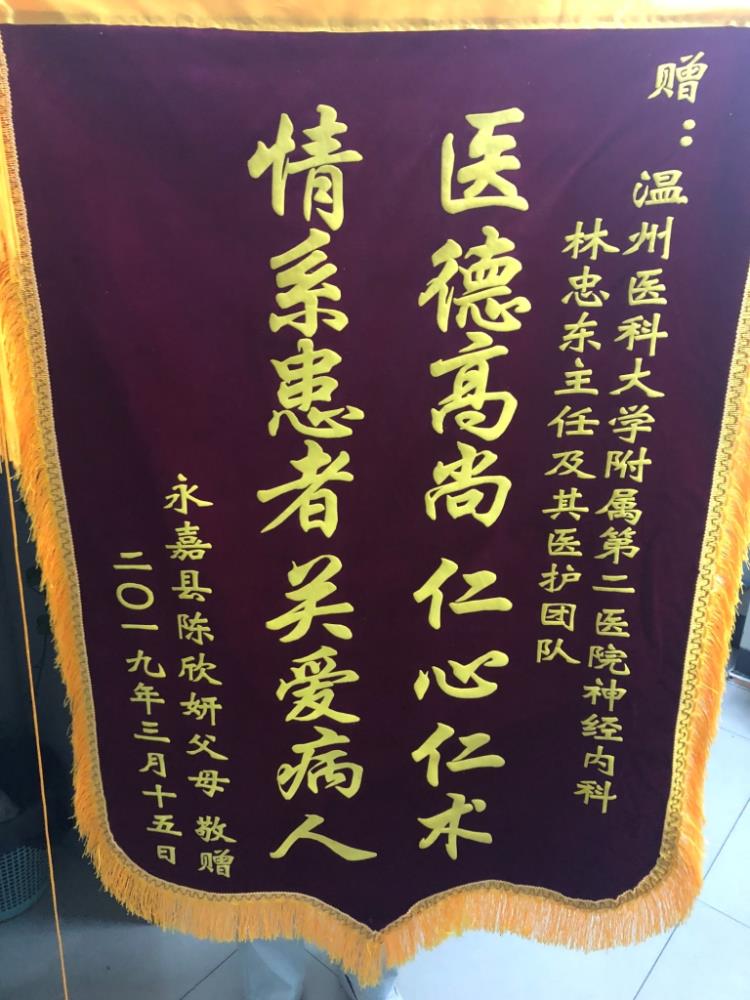 赠：温州医科大学附属第二医院神经内科
林忠东主任及其医护团队
医德高尚仁心仁术
情系患者关爱病人
永嘉县陈欣妍父母 敬赠
二〇一九年三月十五日